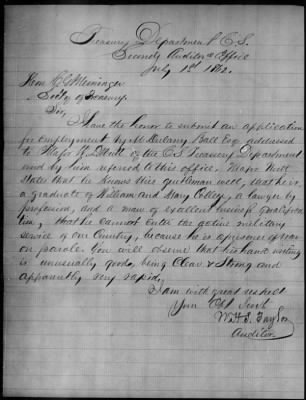 Treasury Department C.S.
Second Auditor's Office
July 12th 1862.
Hon C. G. Memminger
Secty of Treasury.
Sir,
I have the honor to submit an application
for employment by Mr Ball Esq addressed
to Major of the C.S. Treasury Department
and by him referred to this office. Major
States that he knows this gentleman well, that he is
a graduate of William and Mary College, a lawyer by
profession, and a man of excellent business qualifica-
tion, that he cannot enter the active military
service of our Country, because he is a prisoner of war
on parole. You will observe that his hand writing
is unusually good, being clear & strong and
apparently very rapid.
I am with great respect
Your Obt Servt
W. H. S. Taylor
Auditor.